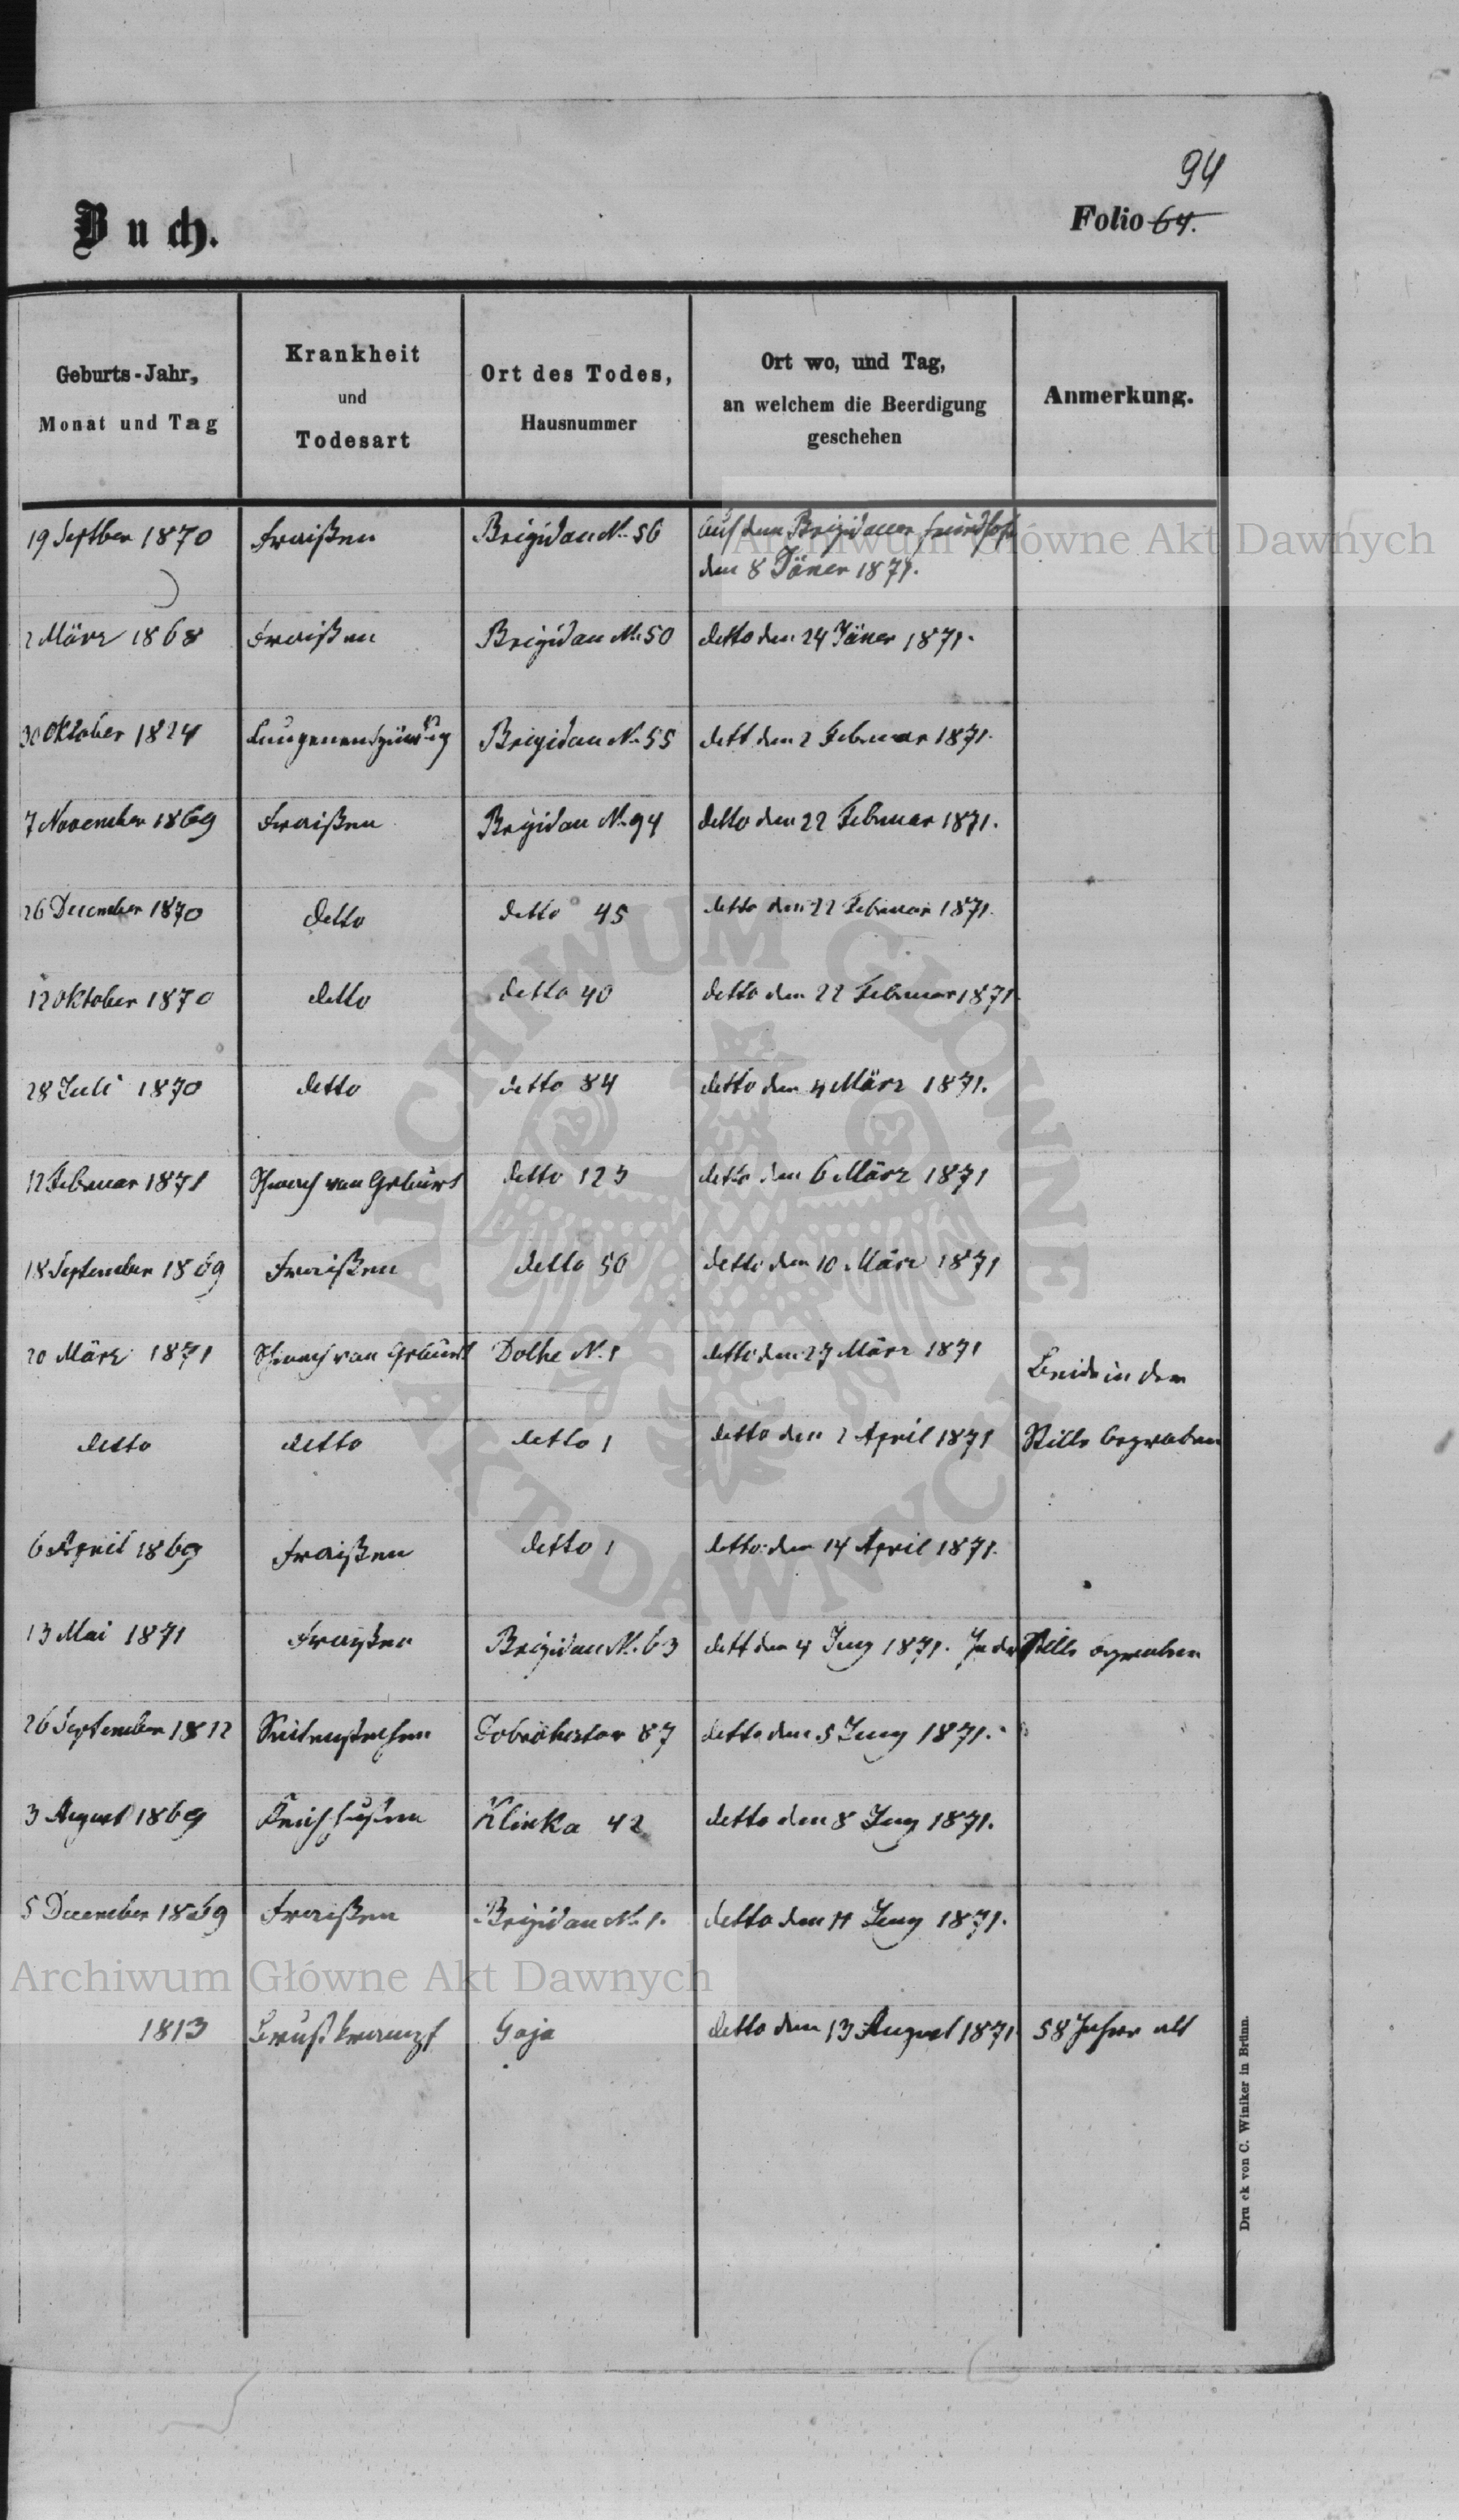 94
Buch.
Folio 64.
Geburts-Jahr,
Monat und Tag
Krankheit
und
Todesart
Ort des Todes,
Hausnummer
Ort wo, und Tag,
an welchem die Beerdigung
geschehen
Anmerkung.
19 Septber 1870 Fraißen Brigidau N. 56 Auf dem Brigidauer Friedhofe
den 8 Jäner 1871.
2 März 1868 Fraißen Brigidau N. 50 detto den 24 Jäner 1871.
30 Oktober 1824 Lungenentzündung Brigidau N. 55 dett den 2 Februar 1871.
7 November 1869 Fraißen Brigidau N. 94 detto den 22 Februar 1871.
26 December 1870 detto detto 45 detto den 22 Februar 1871.
12 Oktober 1870 detto detto 40 detto den 22 Februar 1871.
28 Juli 1870 detto detto 84 detto den 4 März 1871.
12 Februar 1871 Schwach von Geburt detto 123 detto den 6 März 1871
18 September 1869 Fraißen detto 50 detto den 10 März 1871
20 März 1871 Schwach von Geburt Dolhe N. 1 detto den 27 März 1871 Beide in der
detto detto detto 1 detto den 2 April 1871 Stille begraben
6 April 1869 Fraißen detto 1 detto den 14 April 1871.
13 Mai 1871 Fraißen Brigidau N. 63 dett den 4 Juny 1871. In der Stille begraben
26 September 1812 Seitenstechen 87 detto den 5 Juny 1871.
3 August 1869 Keichhusten Klinka 42 detto den 8 Juny 1871.
5 December 1869 Fraißen Brigidau N. 1. detto den 11 Juny 1871.
1813 Brustkrampf Gaja detto den 13 August 1871 58 Jahre alt
Druck von C. Winiker in Brünn.
Archiwum Główne Akt Dawnych
Archiwum Główne Akt Dawnych
ARCHIWUM GŁÓWNE AKT DAWNYCH